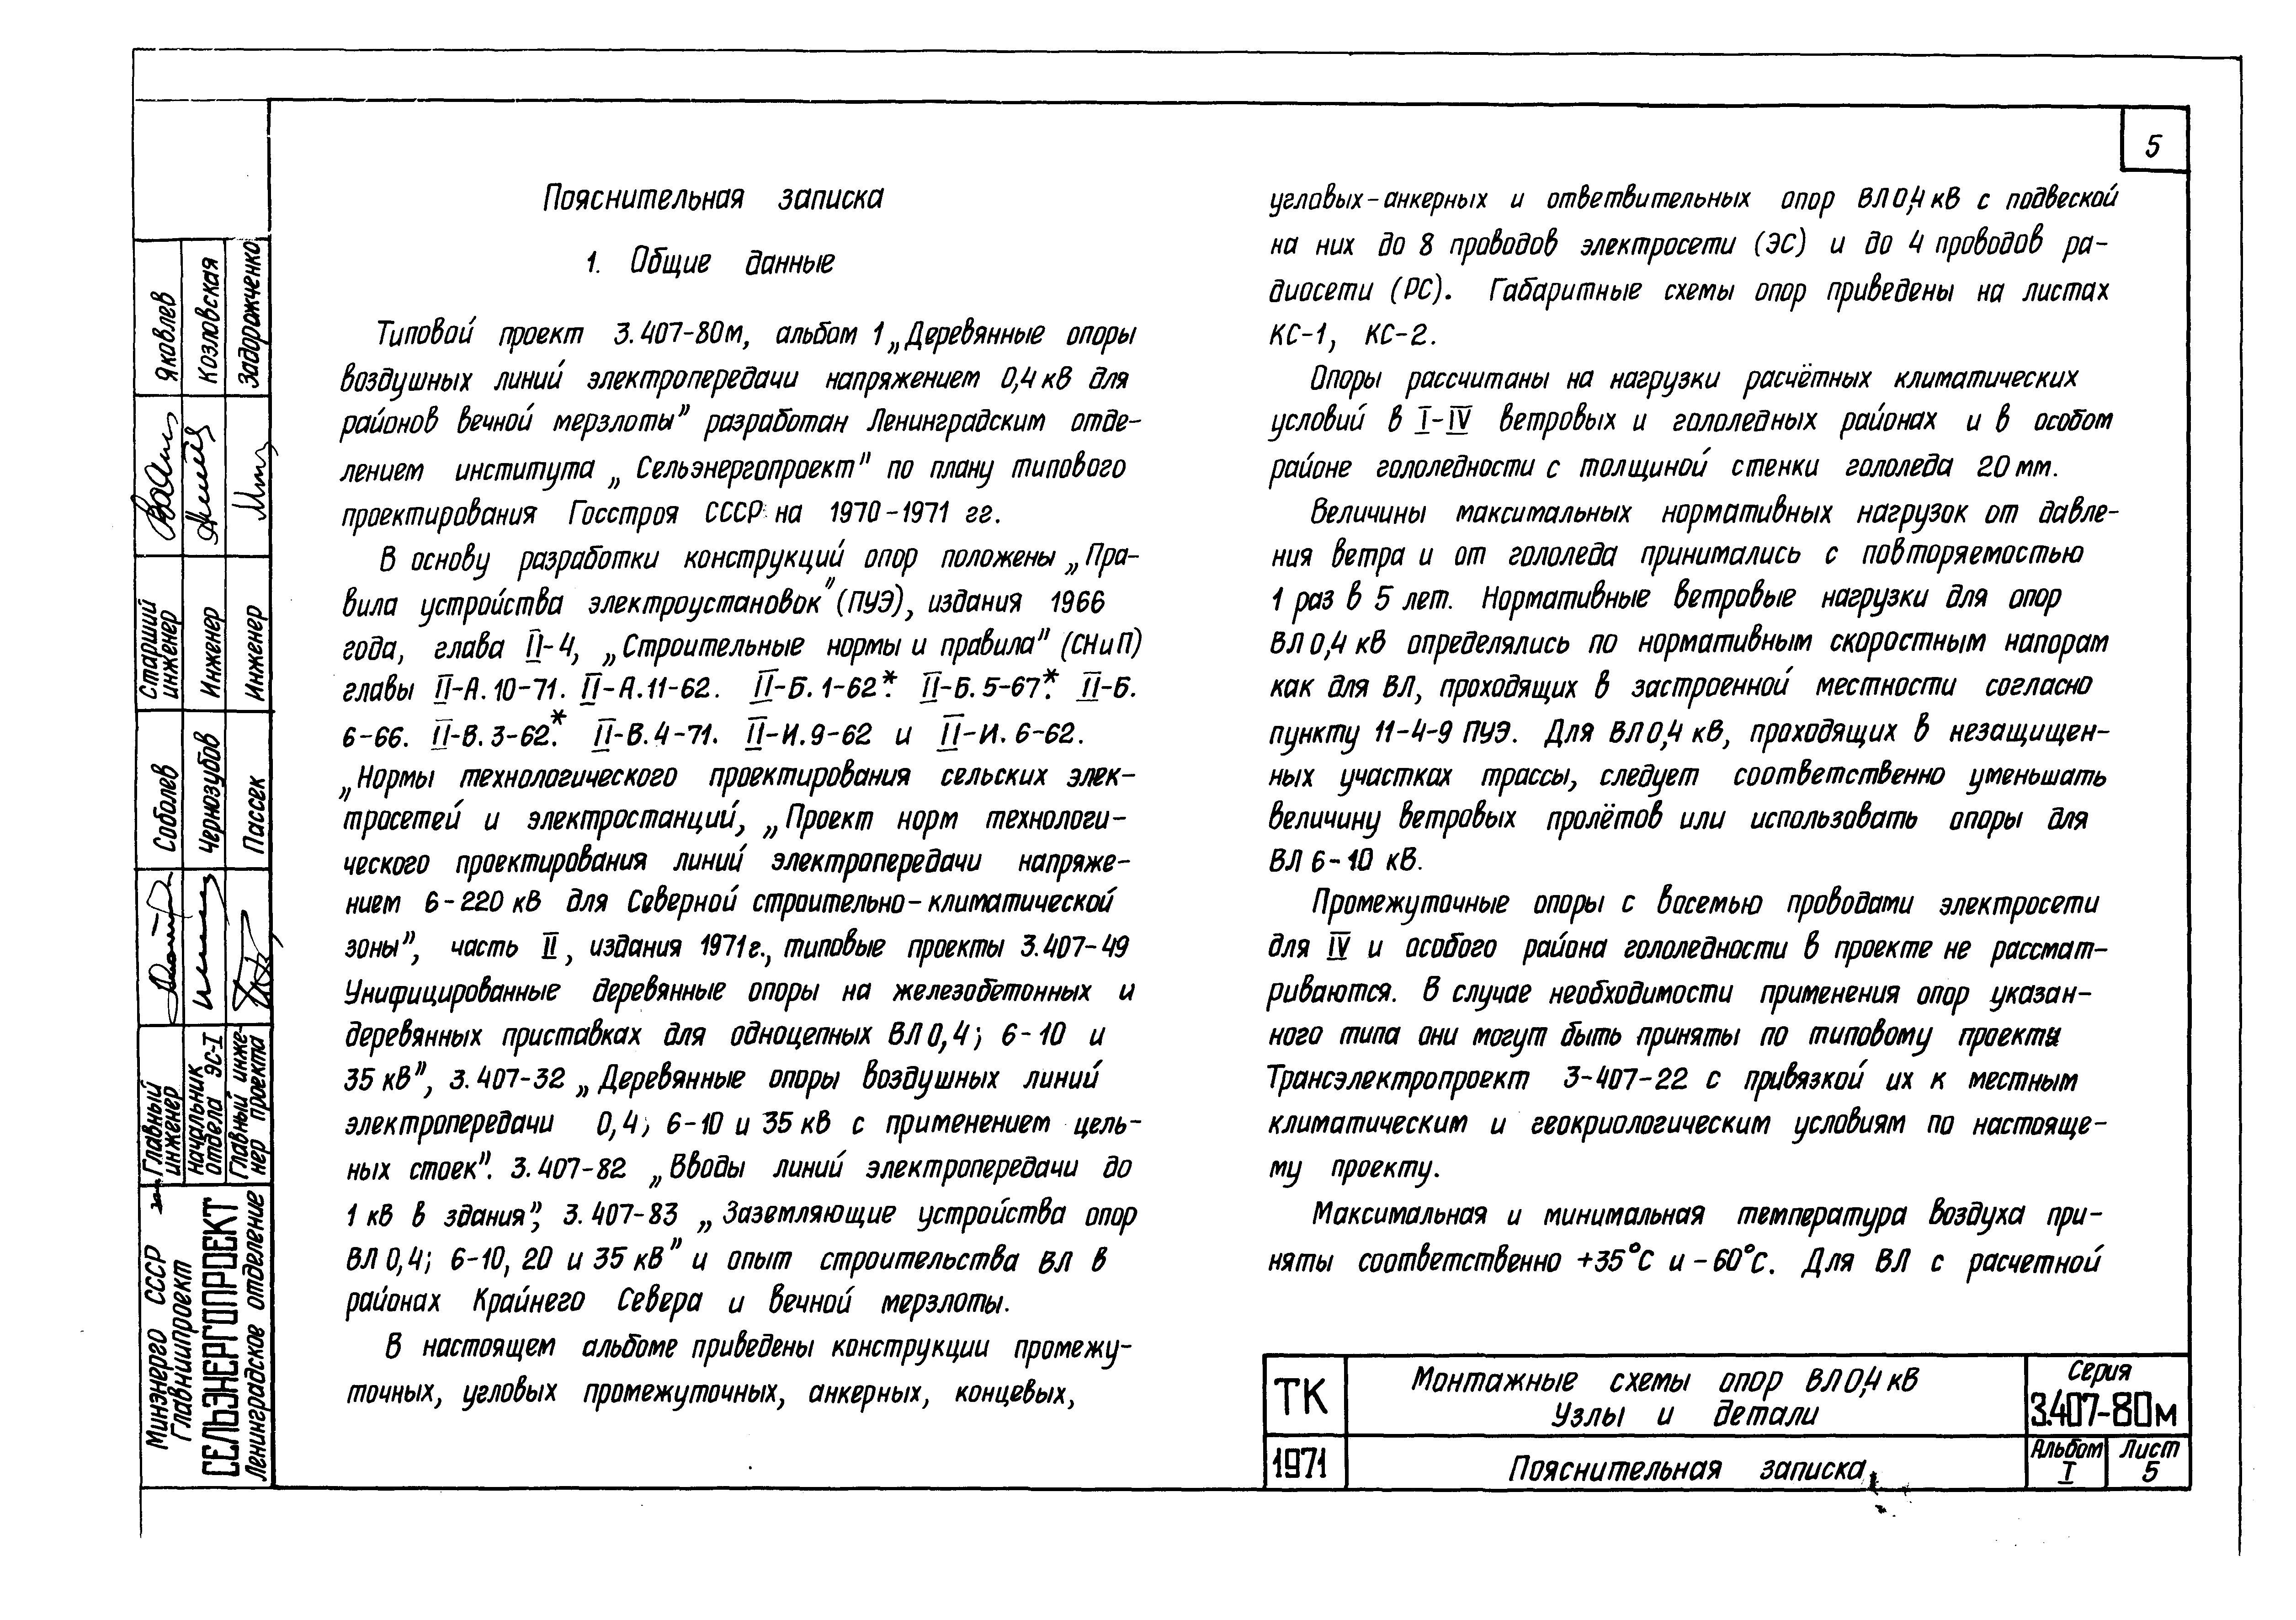 5
Пояснительная записка
1. Общие данные
Типовой проект 3.407-80м, альбом 1 „Деревянные опоры
воздушных линий электропередачи напряжением 0,4 кВ для
районов вечной мерзлоты” разработан Ленинградским отде-
лением института „Сельэнергопроект” по плану типового
проектирования Госстроя СССР на 1970-1971 гг.
В основу разработки конструкций опор положены „Пра-
вила устройства электроустановок” (ПУЭ), издания 1966
года, глава II-4, „Строительные нормы и правила” (СНиП)
главы II-А.10-71. II-А.11-62. II-Б.1-62*. II-Б.5-67*. II-Б.
6-66. II-В.3-62*. II-В.4-71. II-И.9-62 и II-И.6-62.
„Нормы технологического проектирования сельских элек-
тросетей и электростанций, „Проект норм технологи-
ческого проектирования линий электропередачи напряже-
нием 6-220 кВ для Северной строительно-климатической
зоны”, часть II, издания 1971г., типовые проекты 3.407-49
Унифицированные деревянные опоры на железобетонных и
деревянных приставках для одноцепных ВЛ 0,4; 6-10 и
35 кВ”, 3.407-32 „Деревянные опоры воздушных линий
электропередачи 0,4; 6-10 и 35 кВ с применением цель-
ных стоек”. 3.407-82 „Вводы линий электропередачи до
1 кВ в здания”, 3.407-83 „Заземляющие устройства опор
ВЛ 0,4; 6-10, 20 и 35 кВ” и опыт строительства ВЛ в
районах Крайнего Севера и вечной мерзлоты.
В настоящем альбоме приведены конструкции промежу-
точных, угловых промежуточных, анкерных, концевых,
угловых-анкерных и ответвительных опор ВЛ 0,4 кВ с подвеской
на них до 8 проводов электросети (ЭС) и до 4 проводов ра-
диосети (РС). Габаритные схемы опор приведены на листах
КС-1, КС-2.
Опоры рассчитаны на нагрузки расчётных климатических
условий в I-IV ветровых и гололедных районах и в особом
районе гололедности с толщиной стенки гололеда 20 мм.
Величины максимальных нормативных нагрузок от давле-
ния ветра и от гололеда принимались с повторяемостью
1 раз в 5 лет. Нормативные ветровые нагрузки для опор
ВЛ 0,4 кВ определялись по нормативным скоростным напорам
как для ВЛ, проходящих в застроенной местности согласно
пункту 11-4-9 ПУЭ. Для ВЛ 0,4 кВ, проходящих в незащищен-
ных участках трассы, следует соответственно уменьшать
величину ветровых пролётов или использовать опоры для
ВЛ 6-10 кВ.
Промежуточные опоры с восемью проводами электросети
для IV и особого района гололедности в проекте не рассмат-
риваются. В случае необходимости применения опор указан-
ного типа они могут быть приняты по типовому проекту
Трансэлектропроект 3-407-22 с привязкой их к местным
климатическим и геокриологическим условиям по настояще-
му проекту.
Максимальная и минимальная температура воздуха при-
няты соответственно +35°С и -60°С. Для ВЛ с расчетной
ТК
1971
Монтажные схемы опор ВЛ 0,4 кВ
Узлы и детали
Пояснительная записка
Серия
3.407-80м
Альбом
I
Лист
5
Минэнерго СССР
Главниипроект
СЕЛЬЭНЕРГОПРОЕКТ
Ленинградское отделение
Главный
инженер
Начальник
отдела ЭС-I
Главный инже-
нер проекта
Соболев
Чернозубов
Пассек
Старший
инженер
Инженер
Инженер
Яковлев
Козловская
Задорожченко